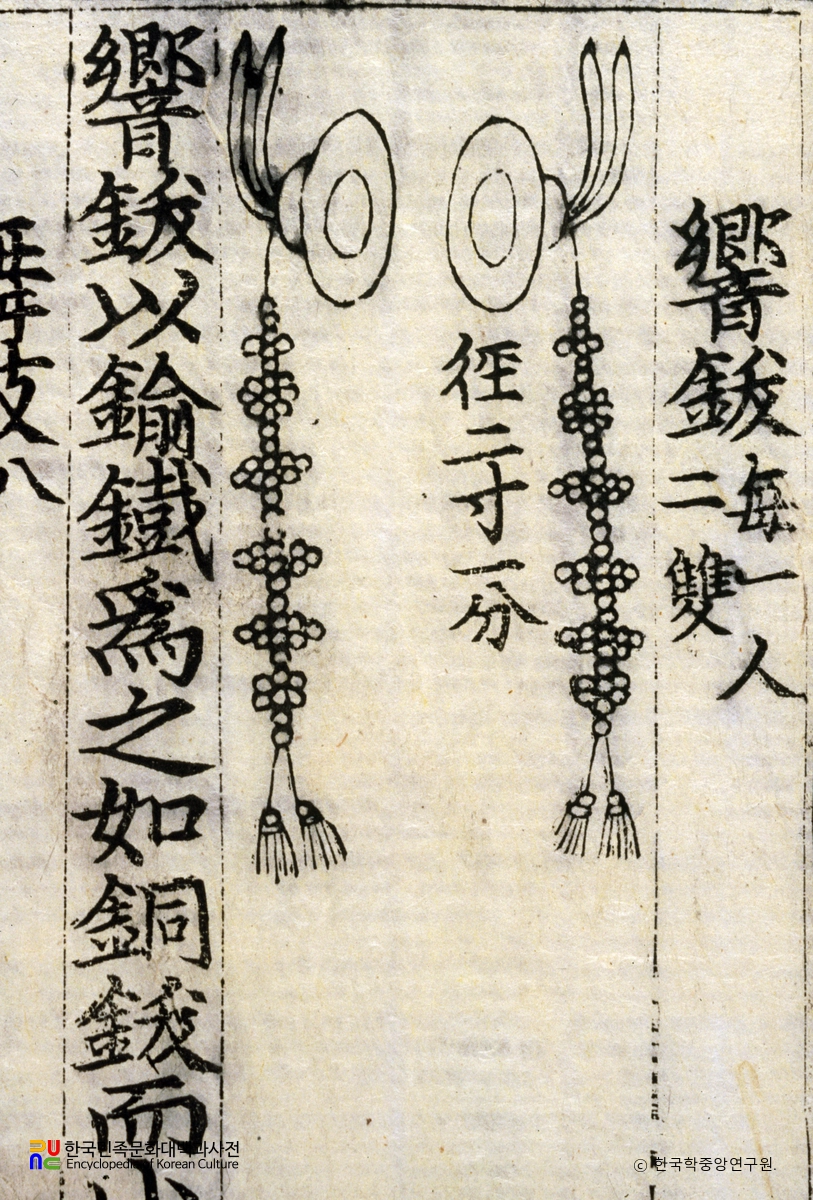 響鈸
每一人
二雙
徑二寸一分
響鈸以鍮鐵爲之如銅鈸而小
한국민족문화대백과사전
Encyclopedia of Korean Culture
ⓒ 한국학중앙연구원.